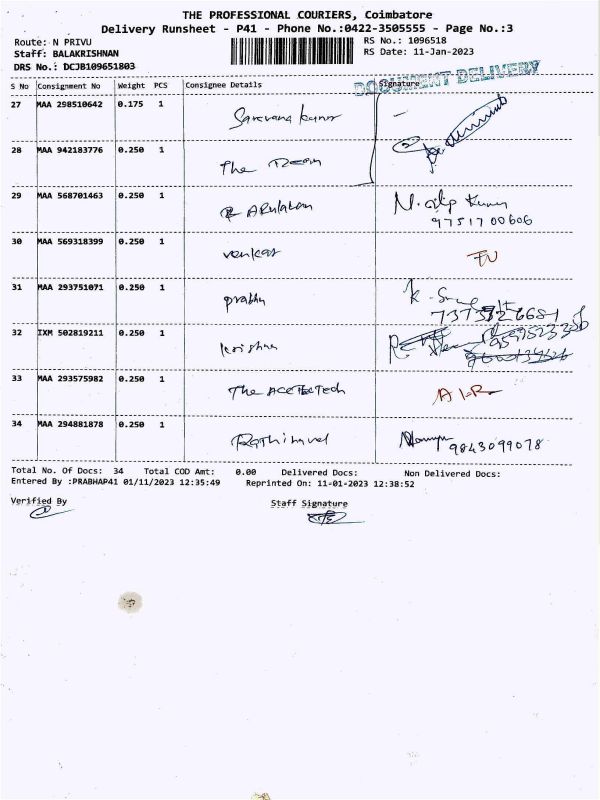 THE PROFESSIONAL COURIERS, Coimbatore
Delivery Runsheet - P41 - Phone No.:0422-3505555 - Page No.:3
Route: N PRIVU RS No.: 1096518
Staff: BALAKRISHNAN RS Date: 11-Jan-2023
DRS No.: DCJB109651803
DOCUMENT DELIVERY
S No Consignment No Weight PCS Consignee Details Signature
27 MAA 298510642 0.175 1 Saravana kumar
28 MAA 942183776 0.250 1 The
29 MAA 568701463 0.250 1 N. dilip kumar
9751700606
30 MAA 569318399 0.250 1 venkat
31 MAA 293751071 0.250 1 prabhu K.
32 IXM 502819211 0.250 1 krishna
33 MAA 293575982 0.250 1 The
34 MAA 294881878 0.250 1 9843099078
Total No. Of Docs: 34 Total COD Amt: 0.00 Delivered Docs: Non Delivered Docs:
Entered By :PRABHAP41 01/11/2023 12:35:49 Reprinted On: 11-01-2023 12:38:52
Verified By Staff Signature